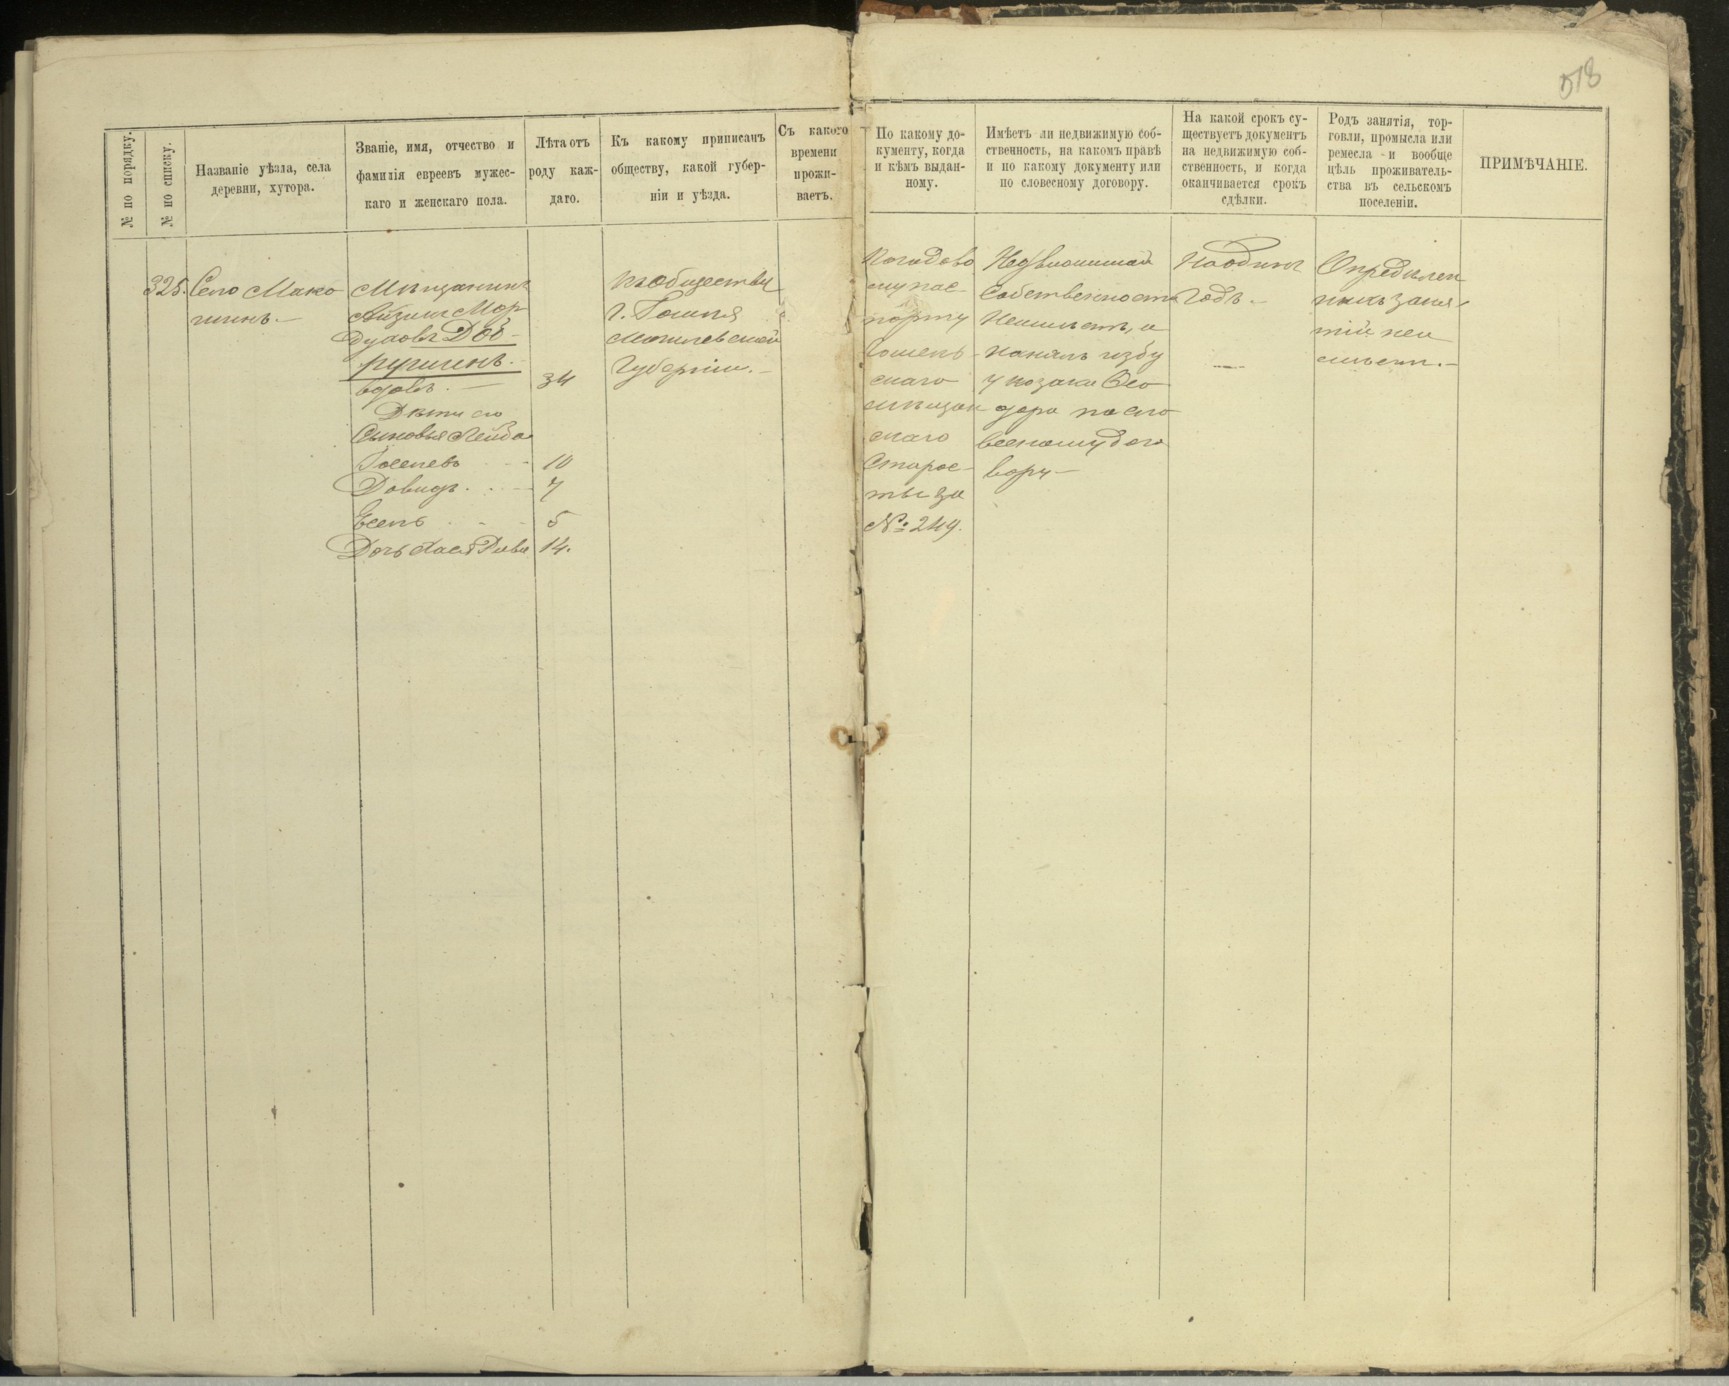 518
№ по порядку.
№ по списку.
Названіе уѣзда, села
деревни, хутора.
Званіе, имя, отчество и
фамилія евреевъ мужес-
каго и женскаго пола.
Лѣта отъ
роду каж-
даго.
Къ какому приписанъ
обществу, какой губер-
ніи и уѣзда.
Съ какого
времени
прожи-
ваетъ.
По какому до-
кументу, когда
и кѣмъ выдан-
ному.
Имѣетъ ли недвижимую соб-
ственность, на какомъ правѣ
и по какому документу или
по словесному договору.
На какой срокъ су-
ществуетъ документъ
на недвижимую соб-
ственность, и когда
оканчивается срокъ
сдѣлки.
Родъ занятія, тор-
говли, промысла или
ремесла и вообще
цѣль проживатель-
ства въ сельскомъ
поселеніи.
ПРИМѢЧАНІЕ.
325.
Село Мако
шинъ.
Мѣщанинъ
Айзикъ Мор
духовъ Доб-
рушинъ.
вдовъ. 34
Дѣти его
Сыновья Лейба
10
Довидъ. 7
5
Дочь Хася Рива 14.
Къ обществу
г. Гомля
Могилевской
Губерніи.
Погодово
му пас-
порту
Гомель-
скаго
мѣщан
скаго
Старос-
ты за
№ 249.
Недвижимой
Собственности
Неимѣетъ, а
нанялъ избу
у козака Фео
дора по сло
весному дого
вору
На одинъ
Годъ.
Опредѣлен
ныхъ заня
тій не и
мѣетъ.